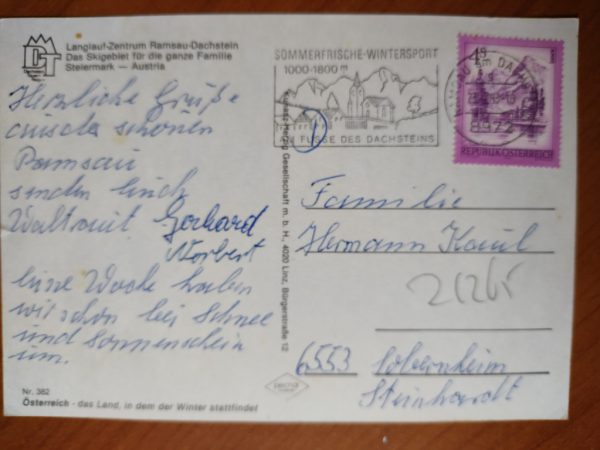 Langlauf-Zentrum Ramsau-Dachstein
Das Skigebiet für die ganze Familie
Steiermark — Austria
Herzliche Grüße
aus der schönen
Ramsau
senden Euch
Waltraut Gerhard
Norbert
Eine Woche haben
wir schon bei Schnee
und Sonnenschein
um.
Nr. 382
Österreich - das Land, in dem der Winter stattfindet
Gesellschaft m. b. H., 4020 Linz, Bürgerstraße 12
SOMMERFRISCHE-WINTERSPORT
1000-1800 m
AM FUSSE DES DACHSTEINS
RAMSAU AM DACHSTEIN
8972
4 S
REPUBLIK ÖSTERREICH
Familie
Hermann Kaul
6553 Sobernheim
Steinhardt